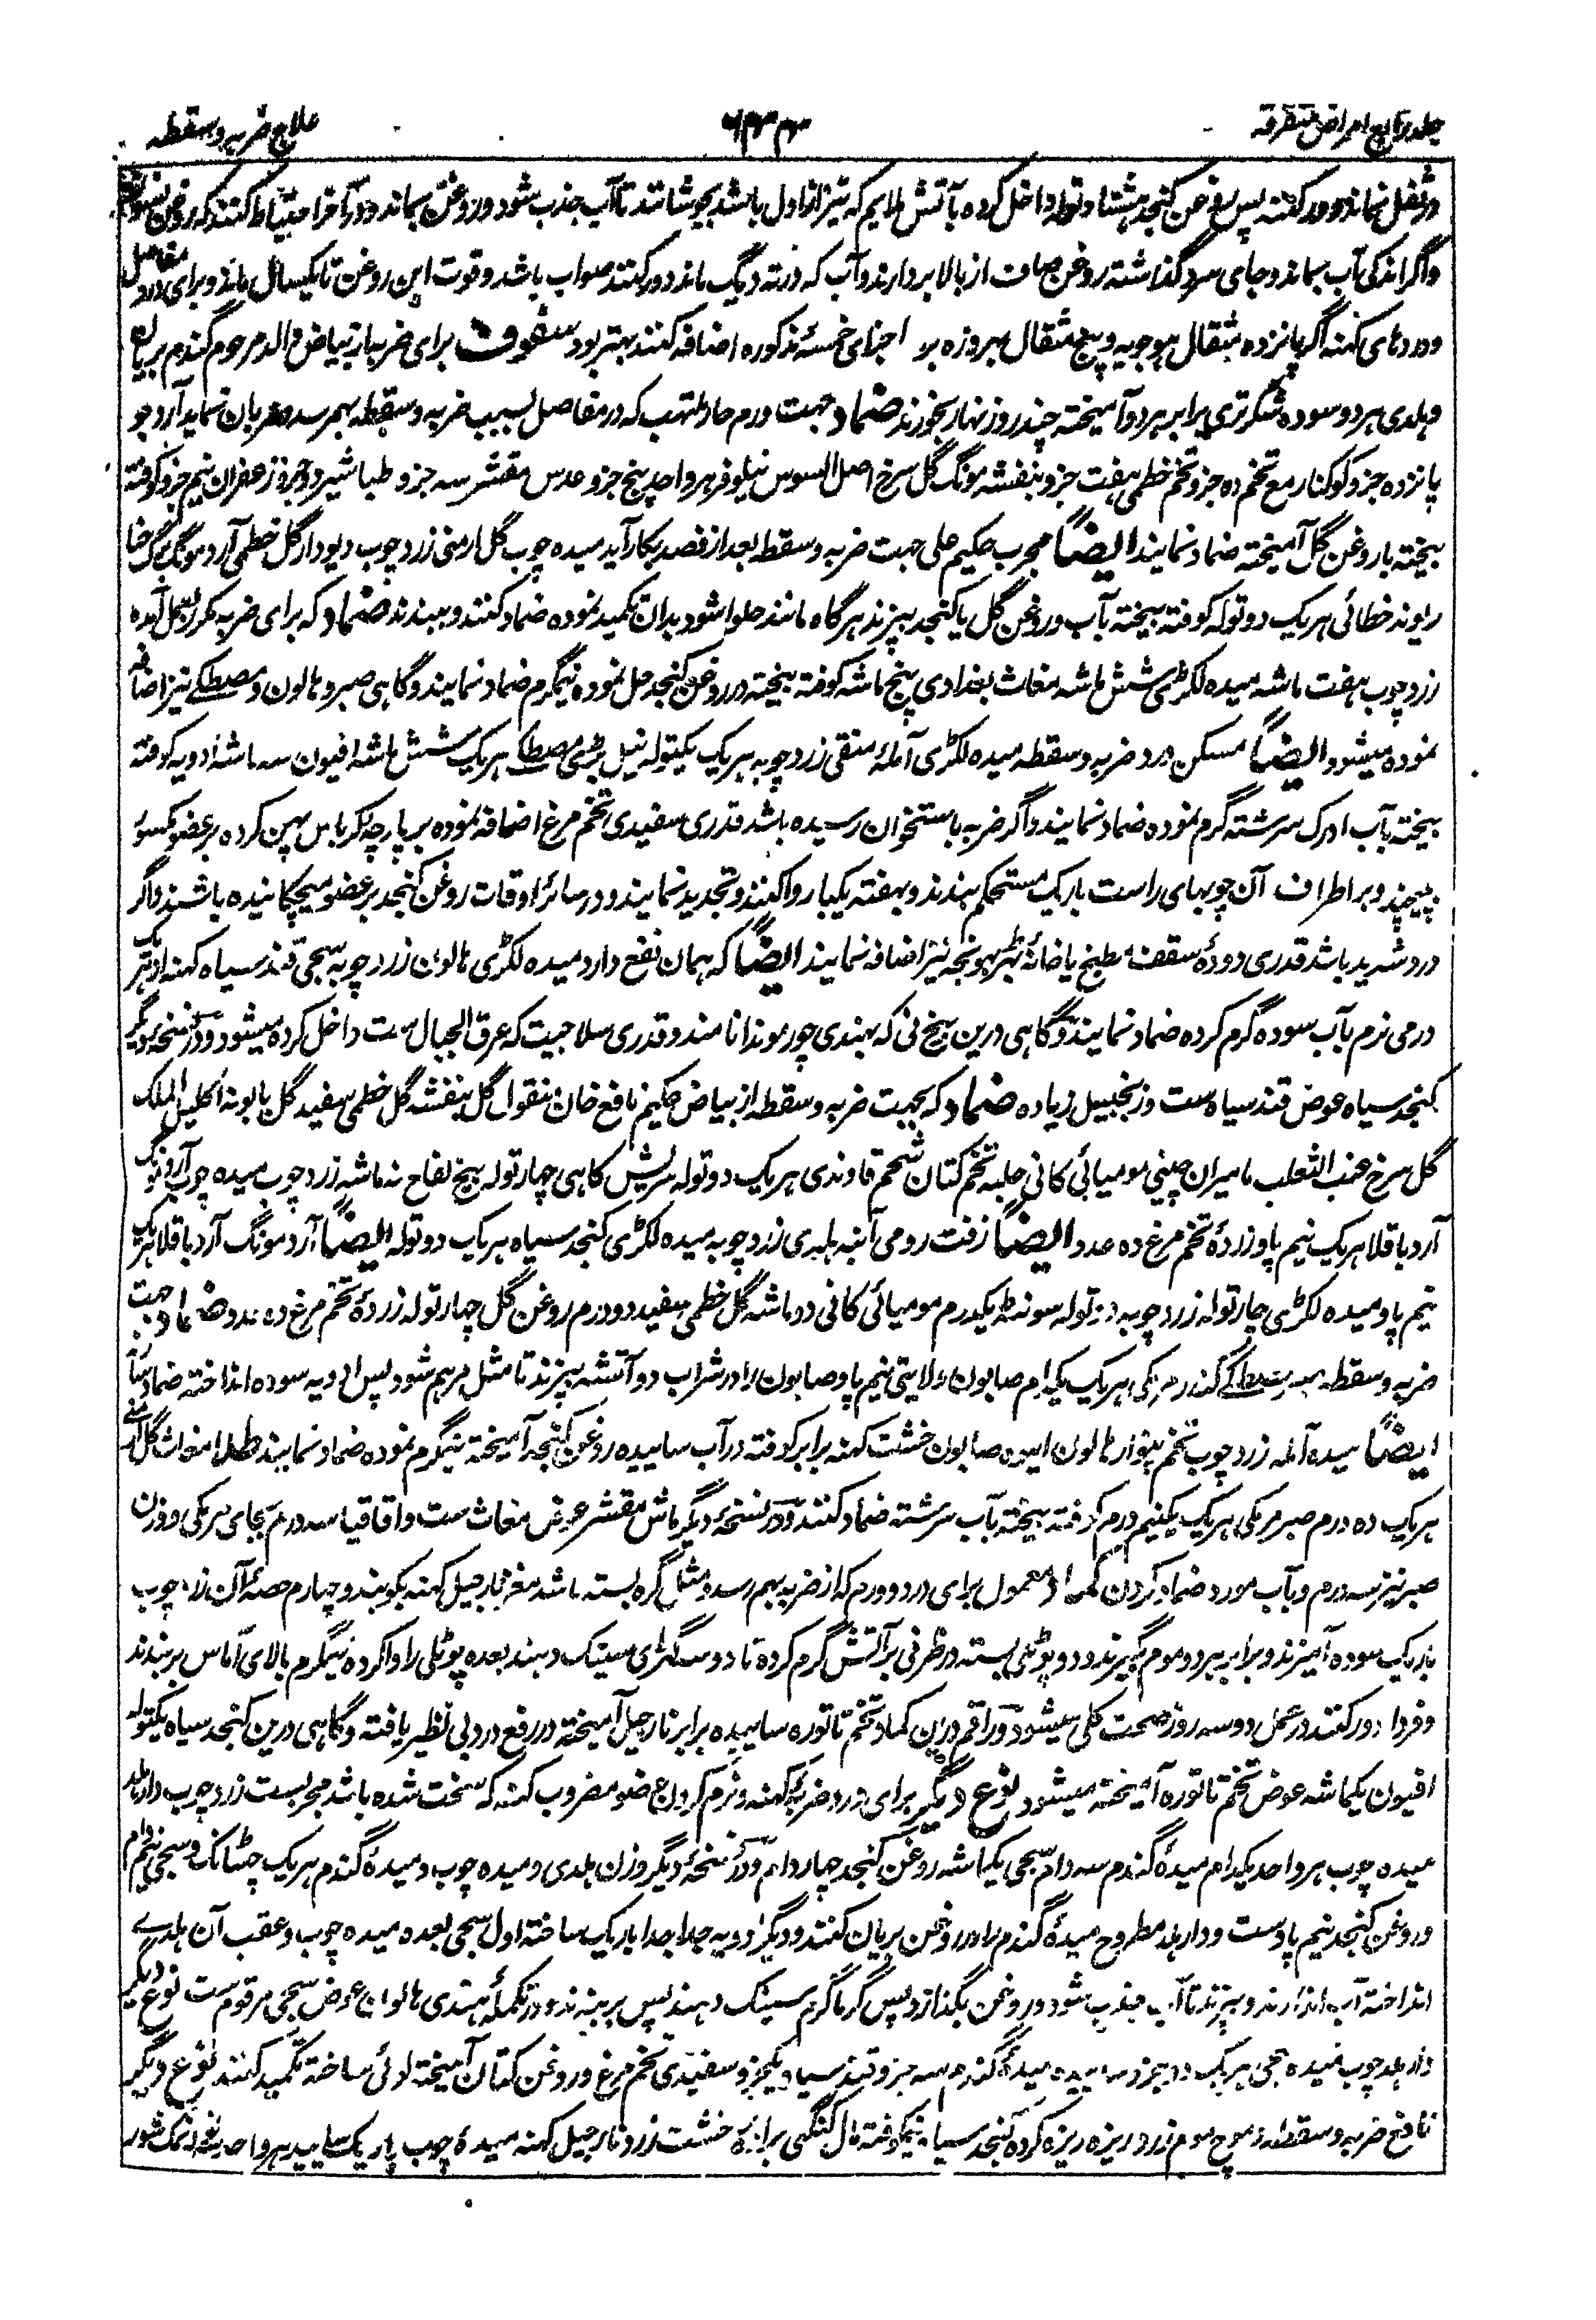 جلد رابع امراض متفرقه
علاج ضربه و سقطه
در ثفل نماند دور کنند پس روغن کنجد هشتاد توله داخل کرده بآتش ملایم که تیز از اول باشد بجوشانند تا آب جذب شود و روغن بماند و در آخر احتیاط کنند که روغن نسوزد
و اگر اندکی آب بماند در جای سرد گذاشته روغن صاف از بالا بردارند و آب که در ته دیگ ماند دور کنند صواب باشد و قوت این روغن تا یکسال ماند و برای درد مفاصل
و دردهای کهنه اگر پانزده مثقال هوجویه و پنج مثقال بهروزه بر اجزای خمسهٔ مذکوره اضافه کنند بهتر بود سفوف برای ضربه از بیاض والد مرحوم گندم بریان
و هلدی هر دو سوده شکر تری برابر هر دو آمیخته چند روز نهار بخورند ضماد جهت ورم حار ملتهب که در مفاصل بسبب ضربه و سقطه بهم رسد و ضربان نماید آرد جو
پانزده جزو کوکنار مع تخم ده جزو تخم خطمی هفت جزو بنفشه مونگ گل سرخ اصل السوس نیلوفر هر واحد پنج جزو عدس مقشر سه جزو طباشیر دو جزو زعفران نیم جزو کوفته
بیخته با روغن گل آمیخته ضماد نمایند ایضاً مجرب حکیم علی جهت ضربه و سقطه بعد از فصد بکار آید میده چوب گل ارمنی زرد چوب دیودار گل خطمی آرد مونگ برگ حنا
ریوند خطائی هر یک دو توله کوفته بیخته بآب و روغن گل یا کنجد بپزند هرگاه مانند حلوا شود بدان تکمید نموده ضماد کنند و ببندند ضماد که برای ضربه مکرر بعمل آمده
زرد چوب هفت ماشه میده لکڑی شش ماشه مغاث بغدادی پنج ماشه کوفته بیخته در روغن کنجد حل نموده نیگرم ضماد نمایند و گاهی صبر و هالون و مصطکی نیز اضافه
نموده میشود ایضاً مسکن درد ضربه و سقطه میده لکڑی آملهٔ منقی زرد چوبه هر یک یکتوله نیل بڑی مصطکی هر یک شش ماشه افیون سه ماشه ادویه کوفته
بیخته بآب ادرک سرشته گرم نموده ضماد نمایند و اگر ضربه باستخوان رسیده باشد قدری سفیدی تخم مرغ اضافه نموده بر پارچه کرباس پهن کرده بر عضو مکسور
پیچند و بر اطراف آن چوبهای راست باریک مستحکم ببندند و بهفته یکبار وا کنند و تجدید نمایند و در سائر اوقات روغن کنجد بر عضو میچکانیده باشند و اگر
درد شدید باشد قدری دودهٔ سقف مطبخ یا خانهٔ بهڑبهونجه نیز اضافه نمایند ایضاً که همان نفع دارد میده لکڑی هالون زرد چوبه سجی قند سیاه کهنه از هر یک
درمی نرم بآب سوده گرم کرده ضماد نمایند و گاهی درین بیخ نی که بهندی چورموندا نامند و قدری سلاجیت که عرق الجبال ست داخل کرده میشود و در نسخه دیگر
کنجد سیاه عوض قند سیاه ست و زنجبیل زیاده ضماد که بجهت ضربه و سقطه از بیاض حکیم نافع خان منقول گل بنفشه گل خطمی سفید گل بابونه اکلیل الملک
گل سرخ عنب الثعلب مامیران چینی مومیائی کانی حلبه تخم کتان شحم قاوندی هر یک دو توله سریش کاهی چهار توله بیخ لفاح نه ماشه زرد چوب میده چوب آرد مونگ
آرد باقلا هر یک نیم پاو زردهٔ تخم مرغ ده عدد ایضاً زفت رومی آنبه هلدی زرد چوبه میده لکڑی کنجد سیاه هر یک دو توله ایضاً آرد مونگ آرد باقلا هر یک
نیم پاو میده لکڑی چار توله زرد چوبه دو توله سونٹھ یکدرم مومیائی کانی دو ماشه گل خطمی سفید دو درم روغن گل چهار توله زردهٔ تخم مرغ ده عدد ضماد جهت
ضربه و سقطه مصطکی کندر مرمکی هر یک یکدام صابون ولایتی نیم پاو صابون را در شراب دو آتشه بپزند تا مثل مرهم شود پس ادویه سوده انداخته ضماد
ایضاً میده آمله زرد چوب تخم پنوار هالون صابون خشت کهنه برابر کوفته در آب سابیده روغن کنجد آمیخته نیگرم نموده ضماد نمایند طلا مغاث گل ارمنی
هر یک ده درم صبر مرمکی هر یک یکنیم درم کوفته بیخته بآب سرشته ضماد کنند و در نسخهٔ دیگر ماش مقشر عوض مغاث ست و اقاقیا سه درم بجای مرمکی و وزن
صبر نیز سه درم و بآب مورد ضماد کردن کماد معمول برای درد و ورم که از ضربه بهم رسد و مثل گره بسته باشد مغز نارجیل کهنه بکوبند و چهارم حصهٔ آن زرد چوب
باریک سوده آمیزند و برابر هر دو موم بگیرند و دو پوٹلی بسته در ظرفی بر آتش گرم کرده تا دو سه گھڑی سینک دهند بعده پوٹلی را وا کرده نیگرم بالای آماس بر بندند
و فردا دور کنند در عمل دو سه روز صحت کلی میشود و راقم درین کماد تخم تاتوره سابیده برابر نارجیل آمیخته در رفع درد بی نظیر یافته و گاهی درین کنجد سیاه یکتوله
افیون یکماشه عوض تخم تاتوره آمیخته میشود نوع دیگر برای درد ضربهٔ کهنه و نرم کردن عضو مضروب کهنه که سخت شده باشد مجربست زرد چوب دارهلد
میده چوب هر واحد یکدام میدهٔ گندم سه دام سجی یکماشه روغن کنجد چهار دام و در نسخهٔ دیگر وزن هلدی و میده چوب و میدهٔ گندم هر یک چٹانک و سجی نیم دام
و روغن کنجد نیم پاو ست و دارهلد مطروح میدهٔ گندم را در روغن بریان کنند و دیگر ادویه جدا جدا باریک ساخته اول سجی بعده میده چوب و عقب آن هلدے
انداخته آب اندازند و بپزند تا آب جذب شود و روغن بگذارد پس گرماگرم سینک دهند پس بر بندند و در تکملهٔ هندی هالون عوض سجی مرقوم ست نوع دیگر
دارهلد چوب میده سجی هر یک دو جزو میدهٔ گندم سه جزو قند سیاه یکجزو سفیدی تخم مرغ و روغن کتان آمیخته لوئی ساخته تکمید کنند نوع دیگر
نافع ضربه و سقطه موم زرد ریزه ریزه کرده کنجد سیاه نیمکوفته مال کنگنی خشت زرد نارجیل کهنه میدهٔ چوب باریک سابیده هر واحد نمک شور